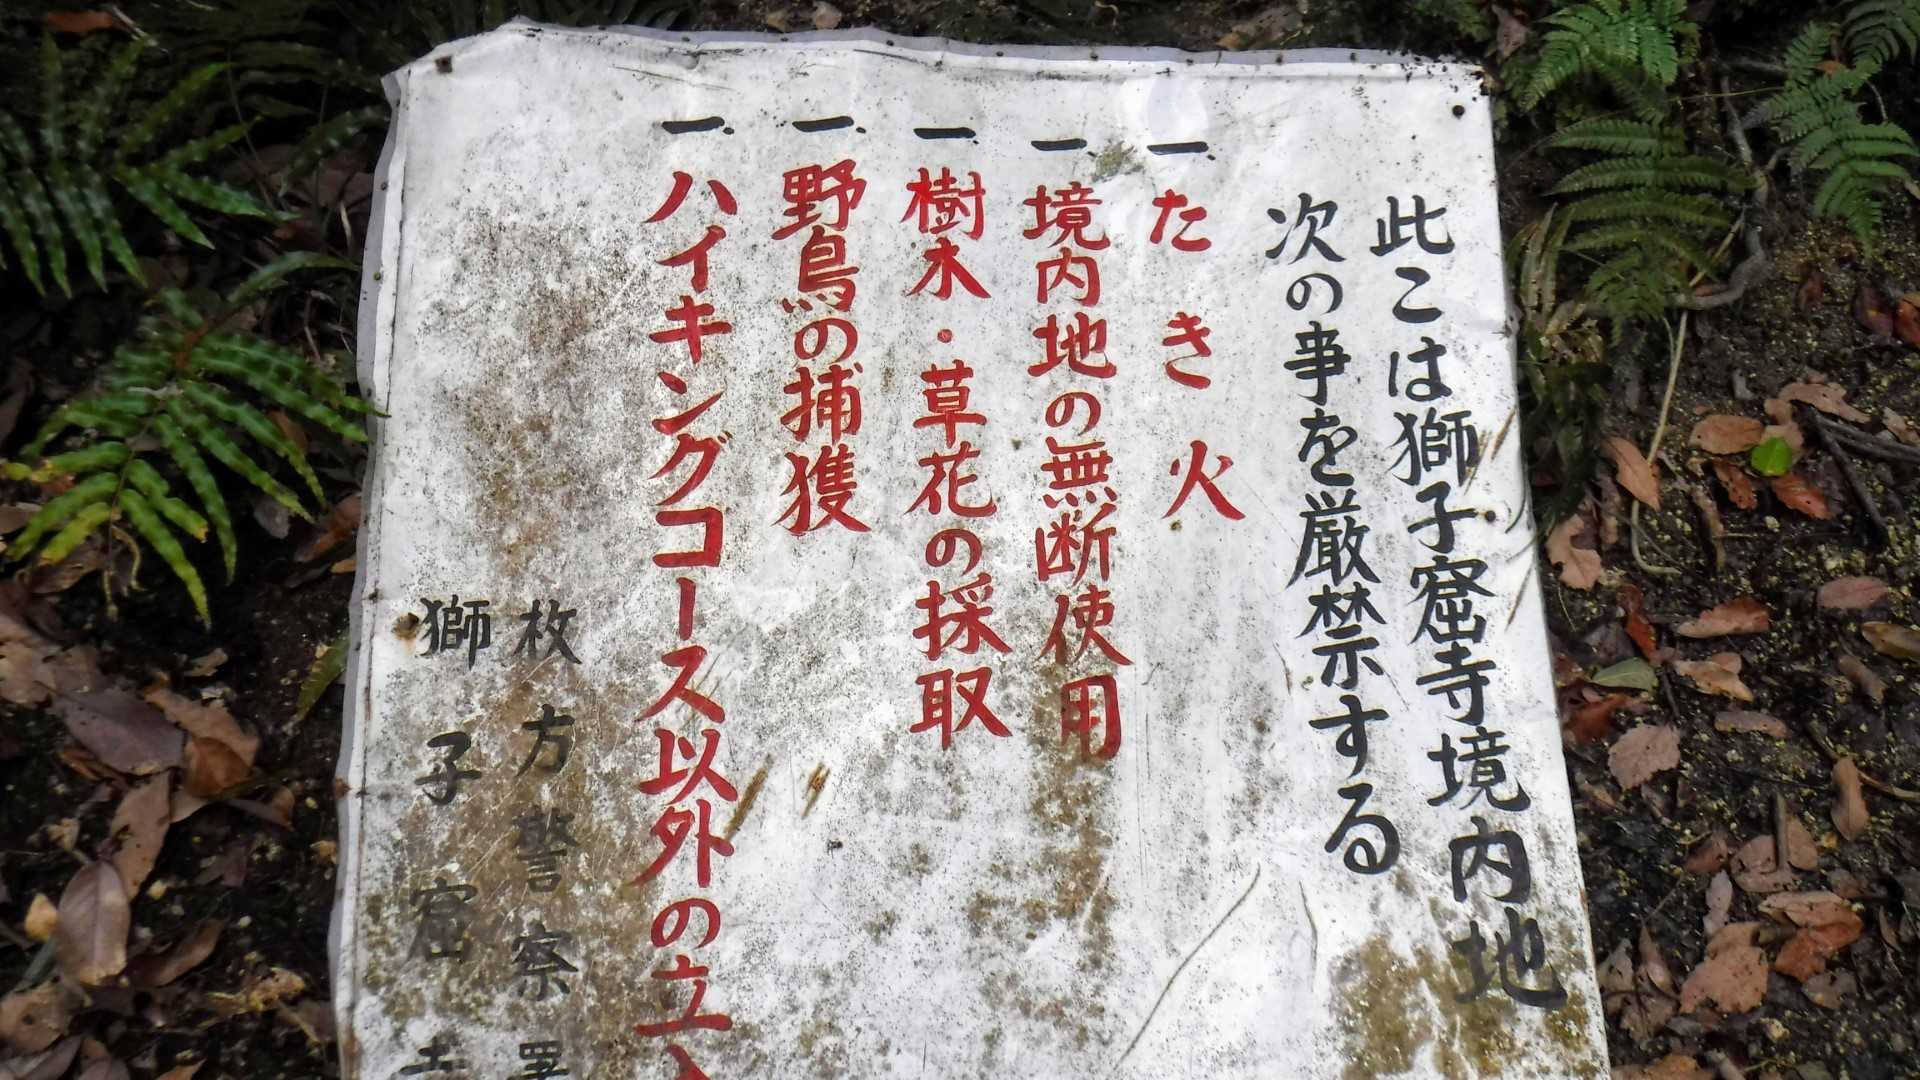 此こは獅子窟寺境内地
次の事を厳禁する
一. たき火
一. 境内地の無断使用
一. 樹木・草花の採取
一. 野鳥の捕獲
一. ハイキングコース以外の立入
枚方警察署
獅子窟寺